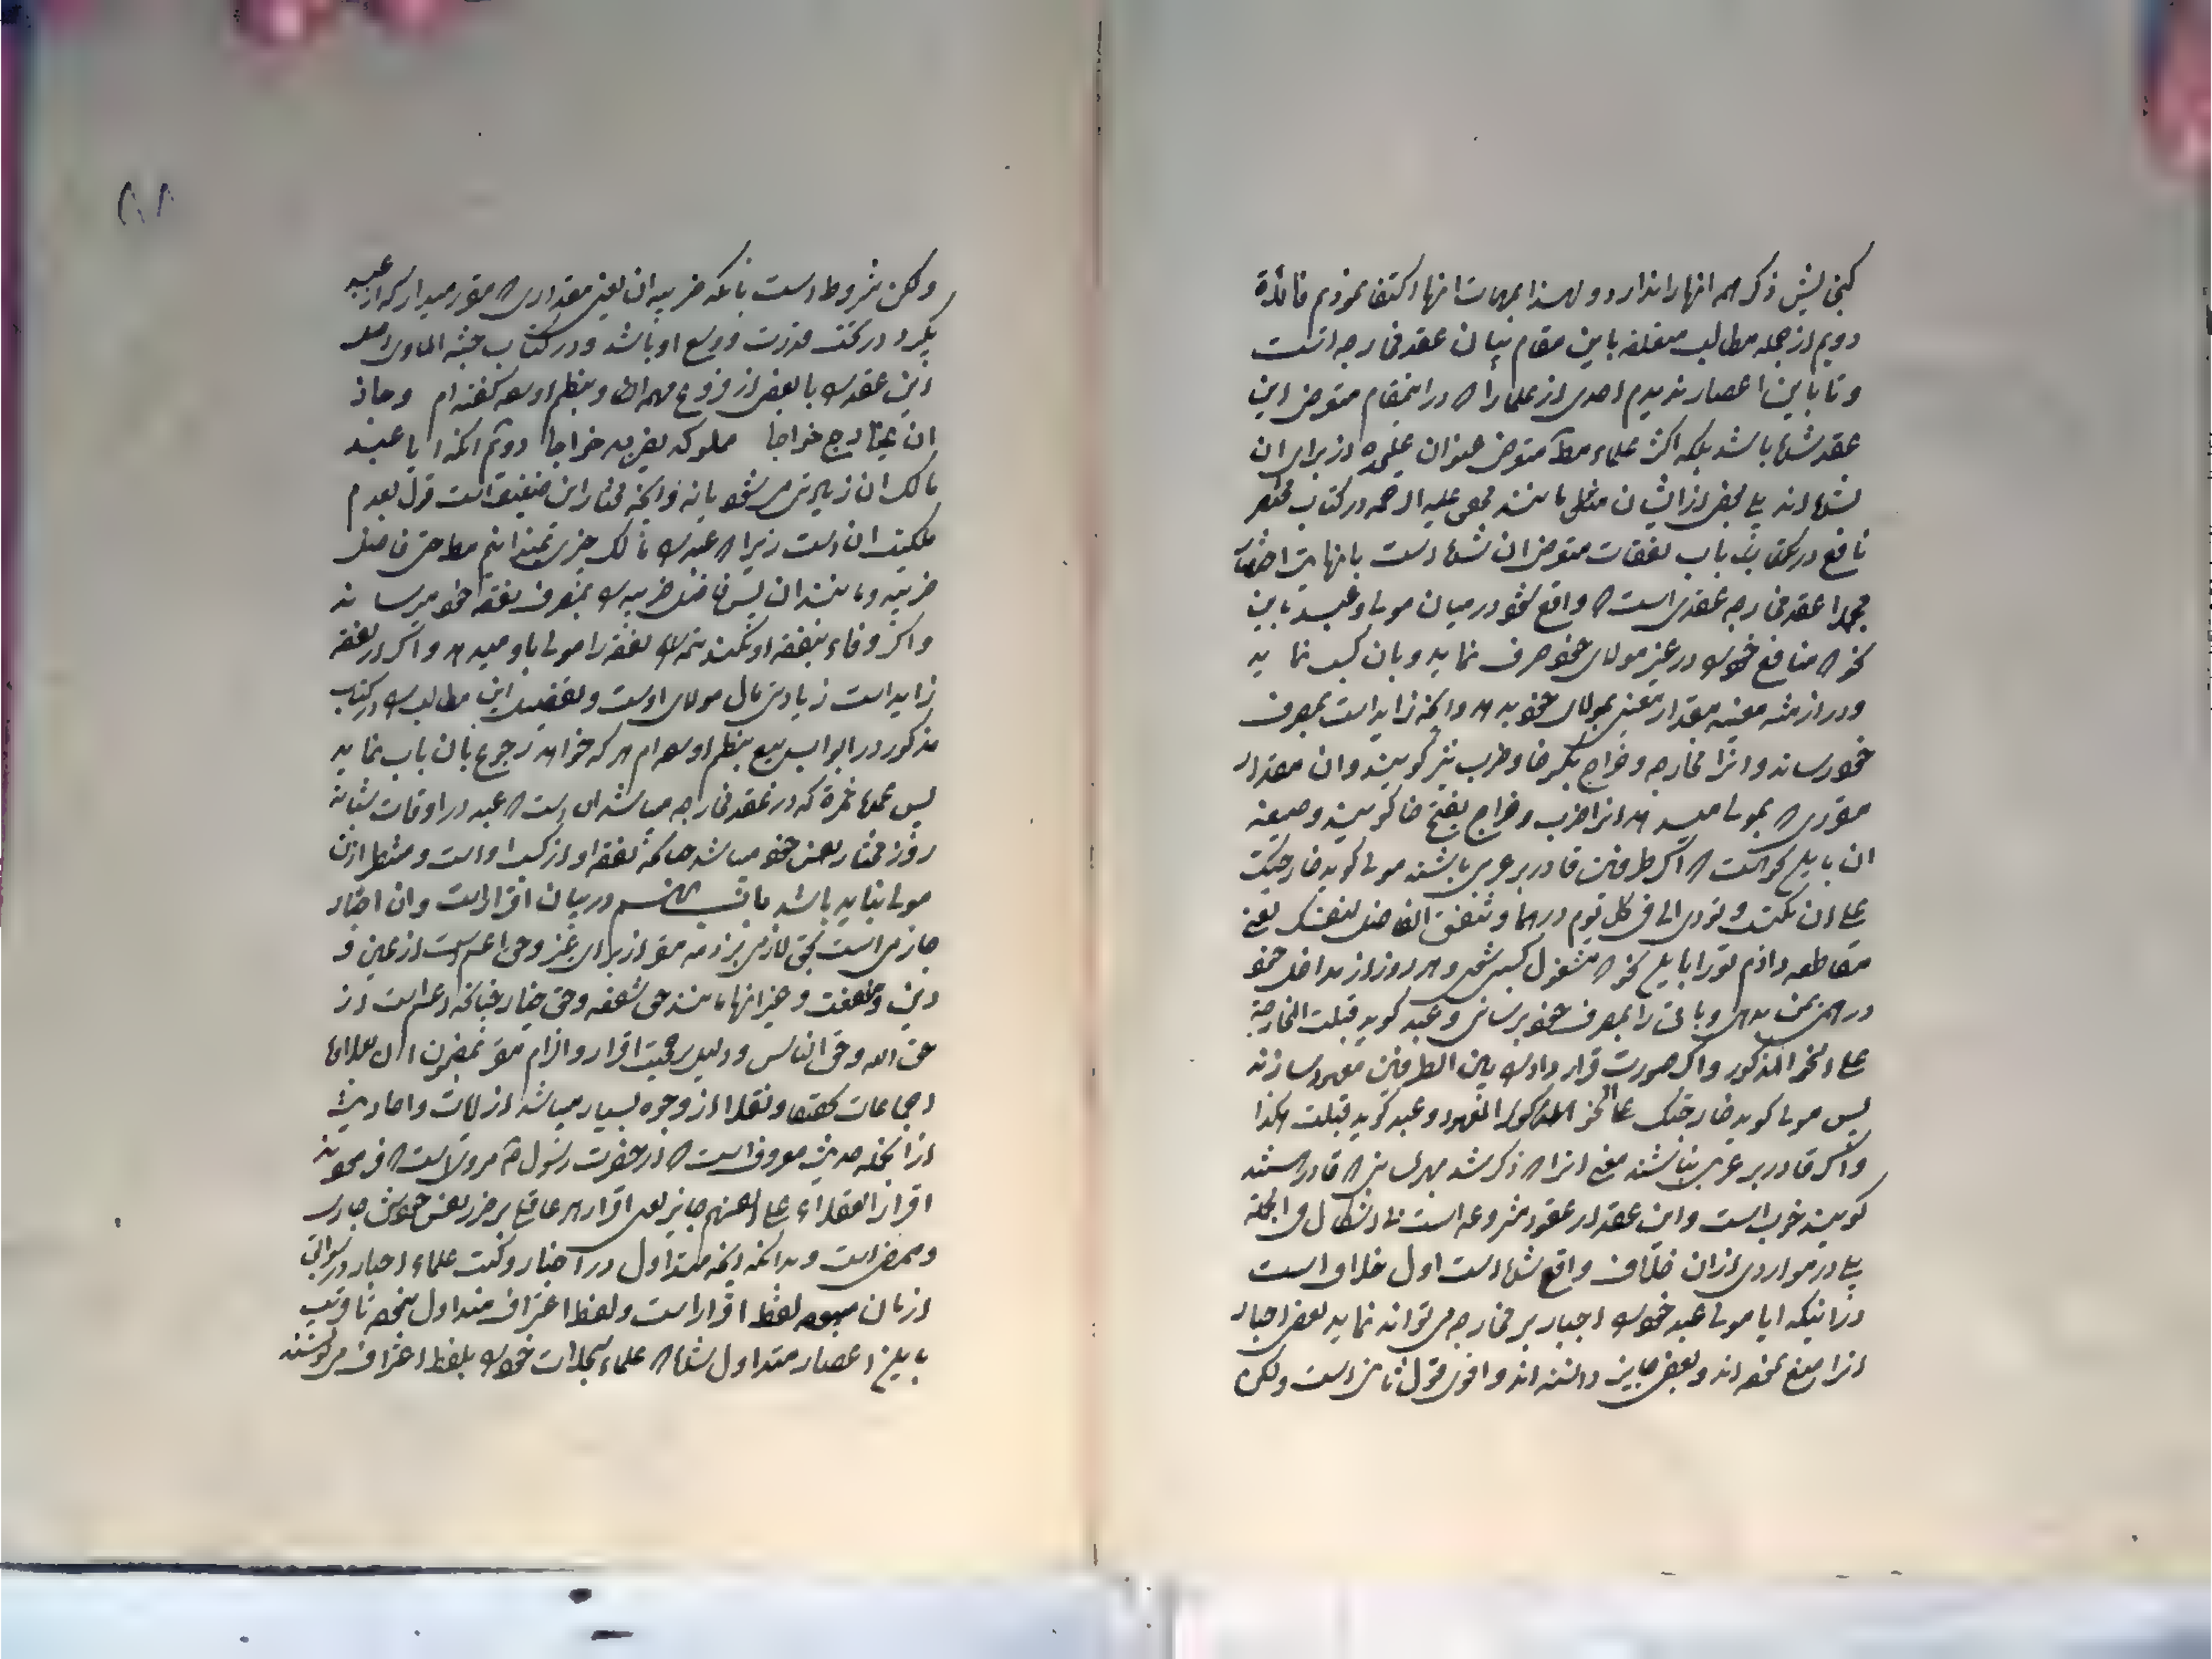 کنجایش ذکر همه انها را ندارد و لهذا بمهمات انها اکتفا نمودیم فائدة
دویم از جمله مطالب متعلقه باین مقام بیان عقد مخارجه است
و تا باین اعصار ندیدم احدی از علما را که در اینمقام متعرض این
عقد شده باشد بلکه اکثر علماء مطلقا متعرض عنوان علیحده از برای ان
نشده اند بلی بعض از ایشان مثل مانند محقق علیه الرحمه در کتاب مختصر
نافع در کتاب باب نفقات متعرض ان شده است با نهایت اختصار
مجملا عقد مخارجه عقدی است که واقع شود در میان مولی و عبد باین
نحو که منافع خود را در غیر مولای خود صرف نماید و بان کسب نماید
و در ازمنه معینه مقدار معینی بمولای خود بدهد و انچه زاید است بمصرف
خود رساند و انرا مخارجه و خراج بکسر خا و ضرب نیز گویند و ان مقدار
مقرری که بمولی میدهد انرا ضرب و خراج بفتح خا گویند و صیغه
ان باین نحو است که اگر طرفین قادر بر عربی باشند مولی گوید خارجتک
علی ان تکتسب و تؤدی الی فی کل یوم درهما و تنفق الفاضل لنفسک یعنی
مقاطعه دادم تو را باین نحو که مشغول کسب شوی و هر روز از مداخل خود
درهمی بمن بدهی و باقی را بمصرف خود برسانی و عبد گوید قبلت المخارجة
علی النحو المذکور و اگر صورت قرار داد را بین الطرفین معهود سازند
پس مولی گوید خارجتک علی النحو المذکور المعهود و عبد گوید قبلت هکذا
و اگر قادر بر عربی نباشند معنی انرا که ذکر شد بهر لسانی که قادر هستند
گویند خوب است و این عقد از عقود مشروعه است بلا اشکال فی الجمله
بلی در مواردی از ان خلاف واقع شده است اول خلاف است
در اینکه ایا مولی عبد خود را اجبار بر مخارجه می تواند نماید بعض اجبار
انرا منع نموده اند و بعض جایز دانسته اند و اقوی قول ثانی است ولکن
ولکن مشروط است بانکه ضریبه ان یعنی مقداری که مقرر میدارد که از عبد
بگیرد در تحت قدرت و وسع او باشد و در کتاب
این عقد را با بعض از فروع مهمه ان بنظم اورده گفته ام و جاز
ان یخارج خراجا مملوکه یضربه خراجا دویم انکه ایا عبد
مالک ان زیادتی می شود یا نه و انچه مختار این ضعیف است قول بعدم
ملکیت ان است زیرا که عبد را مالک چیزی نمیدانیم مطلقا حتی فاضل
ضریبه و مانند ان پس فاضل ضریبه را بمصرف نفقه خود میرساند
و اگر وفاء بنفقه او نکند تتمه نفقه را مولی باو میدهد و اگر از نفقه
زاید است زیادتی مال مولای اوست و تفصیل این مطالب را در کتاب
مذکور در ابواب بیع بنظم اورده ام هر که خواهد رجوع بان باب نماید
پس عمده ثمره که در عقد مخارجه میباشد ان است که عبد در اوقات شبانه
روز مختار نفس خود میباشد چنانکه نفقه او از کسب او است و منتظر اذن
مولی نباید باشد در بیان اقرار است و ان اخبار
جازمی است بحق لازمی بر ذمه مقر از برای غیر و حق اعم است از عین و
دین و منفعت و غیر انها مانند حق شفعه و حق خیار چنانکه اعم است از
حق الله و حق الناس و دلیل بر حجیت اقرار و الزام مقر بمضمون ان علاوه
اجماعات کتبا و نقلا از وجوه بسیار میباشد از ایات و احادیث
از انجمله حدیث معروف است که از حضرت رسول ص مروی است که فرموده
اقرار العقلاء علی انفسهم جایز یعنی اقرار هر عاقلی بر ضرر نفس خویش جاری
و ممضی است و بدانکه انچه متداول در اخبار و کتب علماء اخبار در سوابق
ازمان میبوده لفظ اقرار است و لفظ اعتراف متداول نبوده تا قریب
باین اعصار متداول شده که علماء سجلات خود را بلفظ اعتراف می نویسند